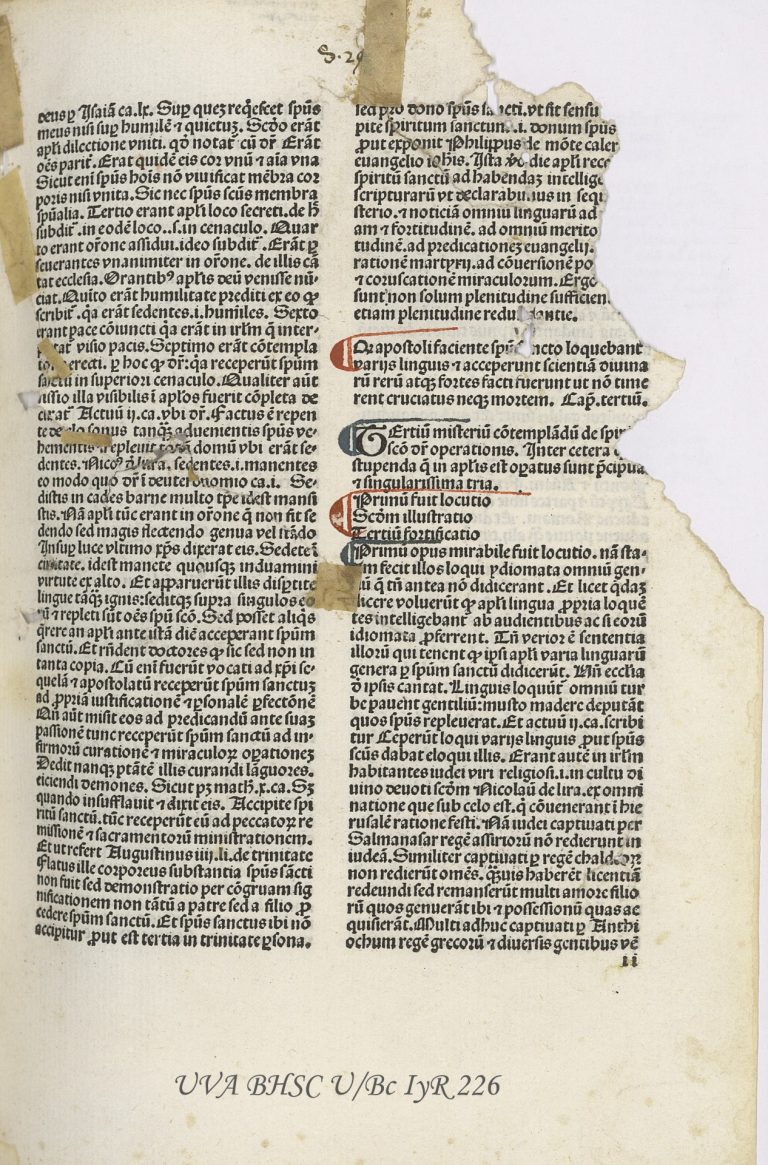 S. 29
deus ꝑ Isaiā ca.lx. Suꝑ quez reqͥescet spūs
meus nisi suꝑ humilē ⁊ quietuʒ. Scďo erāt
apľi dilectione vniti. qď notat̄ cū dr̄ Erāt
oēs parit̄. Erat quidē eis cor vnū ⁊ aīa vna
Sicut eni spūs hoīs nō viuificat mēbra cor
poris nisi vnita. Sic nec spūs scūs membra
spūalia. Tertio erant apľi loco secreti.de ħ
subdit̄. in eodē loco..s.in cenaculo. Quar
to erant or̄one assidui.ideo subdit̄. Erāt ꝑ
seuerantes vnanimiter in or̄one. de illis cā
tat ecclesia. Orantibꝰ apľis deū venisse nū-
ciat. Quīto erāt humilitate prediti ex eo ꝙ
scribit̄. qa erāt sedentes.i.humiles. Sexto
erant pace cōiuncti qa erāt in irľm q̄ inter-
visio pacis. Septimo erant cōtempla
erecti. ꝑ hoc ꝙ dr̄: qa receperūt spūm
sanctū in superiori cenaculo. Qualiter aūt
missio illa visibilis ī apľos fuerit cōpleta de
Actuū ii.ca.vbi dr̄. Factus ē repen
te de sonus tanqʒ aduenientis spūs ve-
hementis ⁊ repleuit domū vbi erāt se-
dentes. Nico. lira. sedentes.i.manentes
eo modo quo dr̄ ī deuteronomio ca.i. Se-
distis in cades barne multo tp̄e idest mansi
stis. Nā apľi tūc erant in or̄one q̄ non fit se
dendo sed magis flectendo genua vel stādo
Insuꝑ luce vltimo xp̄s dixerat eis. Sedete ī
ciuitate. idest manete quousqʒ induamini
virtute ex alto. Et apparuerūt illis disꝑtite
lingue tāqʒ ignis: seditqʒ supra singulos eo
rū ⁊ repleti sūt oēs spū scō. Sed posset aliqͥs
q̄rere an apľi ante istā diē acceperant spūm
sanctū. Et rn̄dent doctores ꝙ sic sed non in
tanta copia. Cū eni fuerūt vocati ad xp̄i se-
quelā ⁊ apostolatū receperūt spūm sanctuʒ
ad ꝓpriā iustificationē ⁊ ꝑsonalē ꝑfectōnē
Qn̄ aūt misit eos ad predicandū ante suaʒ
passionē tunc receperūt spūm sanctū ad in-
firmorū curationē ⁊ miraculoꝝ oꝑationeʒ
Dedit nanqʒ ptātē illis curandi lāguores.
eiciendi demones. Sicut pʒ math̄.x.ca. Sʒ
quando insufflauit ⁊ dixit eis. Accipite spi
ritū sanctū.tūc receperūt eū ad peccatoꝝ re
missionē ⁊ sacramentorū ministrationem.
Et vt refert Augustinus iiii.li.de trinitate
Flatus ille corporeus substantia spūs sācti
non fuit sed demonstratio per cōgruam sig
nificationem non tātū a patre sed a filio ꝓ
cedere spūm sanctū. Et spūs sanctus ibi nō
accipitur ꝓut est tertia in trinitate ꝑsona.
sed pro dono spūs sancti.vt sit sensu
pite spiritum sanctum.i. donum spūs
ꝓut exponit Philippus de mōte caler
euangelio ioħis. Ista die apľi rece
spiritū sanctū ad habendaʒ intellige
scripturarū vt declarabimus in seq
sterio.⁊ noticiā omniū linguarū ad
am ⁊ fortitudinē. ad omniū merito
tudinē.ad predicationeʒ euangelij.
rationem martyrij.ad cōuersionē po
⁊ coruscationē miraculorum. Ergo
sunt non solum plenitudine sufficien
etiam plenitudine redundantie.
Or apostoli faciente spū sancto loquebant̄
varijs linguis ⁊ acceperunt scientiā diuina
rū rerū atqʒ fortes facti fuerunt vt nō time
rent cruciatus neqʒ mortem. Cap̄.tertiū.
TErtiū misteriū cōtemplādū de spi
scō dr̄ operationis. Inter cetera
stupenda q̄ in apľis est oꝑatus sunt pͥncipua
⁊ singularissima tria.
Primū fuit locutio
Scďm illustratio
Tertiū fortificatio
Primū opus mirabile fuit locutio. nā sta-
tim fecit illos loqui ydiomata omniū gen-
tiū q̄ tn̄ antea nō didicerant. Et licet qͥdaʒ
dicere voluerūt ꝙ apľi lingua ꝓpria loquē
tes intelligebant̄ ab audientibus ac si eorū
idiomata ꝓferrent. Tn̄ verior ē sententia
illorū qui tenent ꝙ ipsi apľi varia linguarū
genera ꝑ spūm sanctū didicerūt. Vn̄ eccľia
ď ipsis cantat. Linguis loquūt̄ omniū tur
be pauent gentiliū:musto madere deputāt
quos spūs repleuerat. Et actuū ii.ca.scribi
tur Ceperūt loqui varijs linguis ꝓut spūs
scūs dabat eloqui illis. Erant autē in irľm
habitantes iudei viri religiosi.i.in cultu di
uino deuoti scďm Nicolaū de lira.ex omni
natione que sub celo est.q̄ cōuenerant ī hie
rusalē ratione festi. Nā iudei captiuati per
Salmanasar regē assiriorū nō redierunt in
iudeā. Similiter captiuati ꝑ regē chaldeoꝝ
non redierūt omēs. qʒuis haberēt licentiā
redeundi sed remanserūt multi amore filio
rū quos genuerāt ibi ⁊ possessionū quas ac
quisierāt. Multi adhuc captiuati ꝑ Anthi
ochum regē grecorū ⁊ diuersis gentibus vē
ii
UVA BHSC U/Bc IyR 226